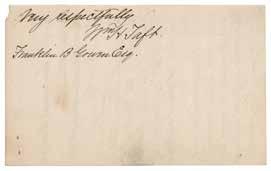 Very respectfully
Wm H Taft
Franklin B Gowen Esq.